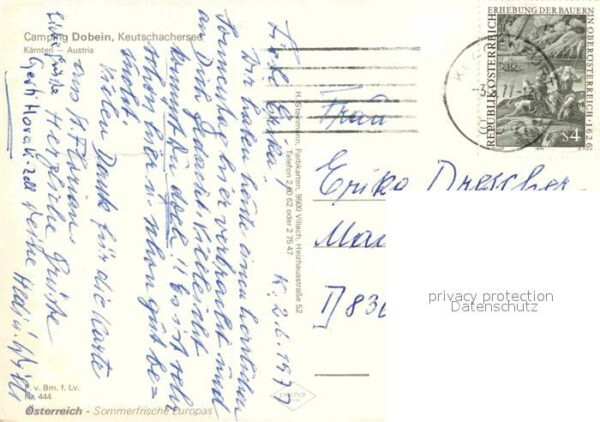 Camping Dobein, Keutschachersee
Kärnten – Austria
K. 2.6.1977
Liebe Erika!
Wir haben heute einen herrlichen
Sonntag hier verbracht und
an Dich gedacht. Vielleicht
kommst Du doch!! Es ist sehr
schön hier u. schon gut be-
sucht.
Vielen Dank für die Karte
aus St. Florian.
Herzliche Grüße
Liebe Grüße
Gerti Horak
H. Steinmann, Farbkarten, 9500 Villach, Heizhausstraße 52
Telefon 2 80 62 oder 2 75 47
Frau
Erika Drescher
D 830
REPUBLIK ÖSTERREICH
ERHEBUNG DER BAUERN
IN OBERÖSTERREICH · 1626
S4
privacy protection
Datenschutz
P. v. Bm. f. Lv.
Na 444
Österreich - Sommerfrische Europas